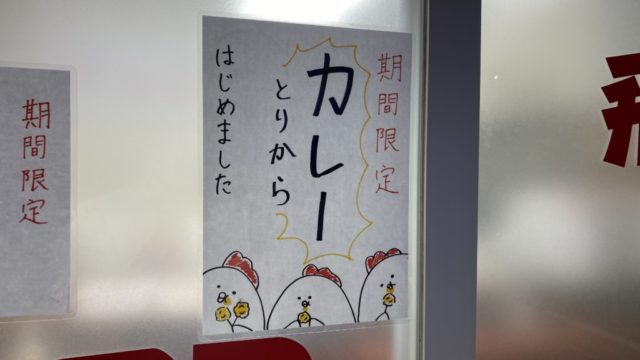 期間限定
カレー
とりから
はじめました
期間限定